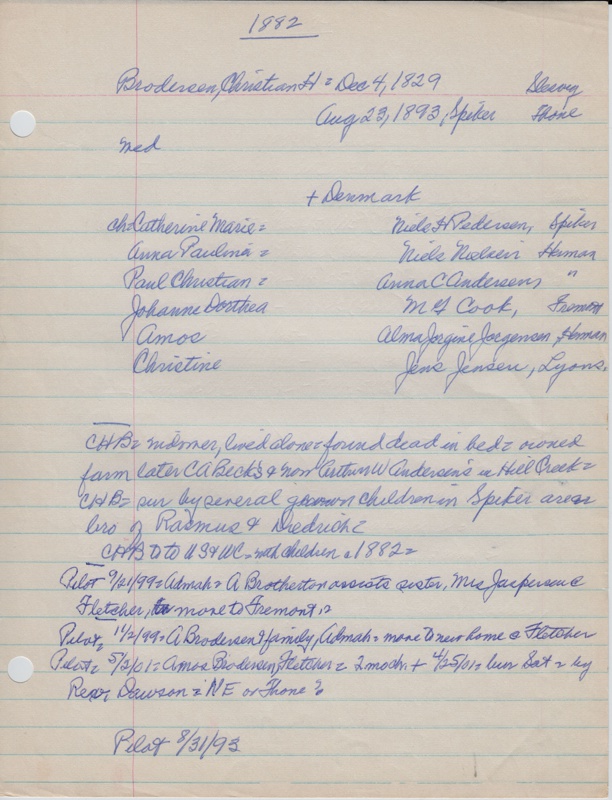 1882
Brodersen, Christian H = Dec 4, 1829
Aug 23, 1893, Spiker Thone
med
+ Denmark
ch = Catherine Marie = Niels H Pedersen, Spiker
Anna Paulina = Niels Nielsen Herman
Paul Christian = Anna C Andersen "
Johanne Dorthea M G Cook, Fremont
Amos Alma Jorgine Jorgensen, Herman
Christine Jens Jensen, Lyons.
CHB = widower, lived alone = found dead in bed = owned
farm later C A Beck's & now Arthur W Andersen's in Hill Creek =
CHB = sur by several grown children in Spiker area
bro of Rasmus & Diedrich =
CHB to US & WC = with children c 1882 =
Pilot 9/21/99 = Admah = A Brotherton assists sister, Mrs Jaspersen c
Fletcher, move to Fremont =
Pilot = 11/2/99 = A Brodersen & family, Admah = move to new home c Fletcher
Pilot = 5/2/01 = Amos Brodersen, Fletcher = 2 mo dc + 4/25/01 = bur Sat = by
Rev Dawson = NE or Thone
Pilot 8/31/93